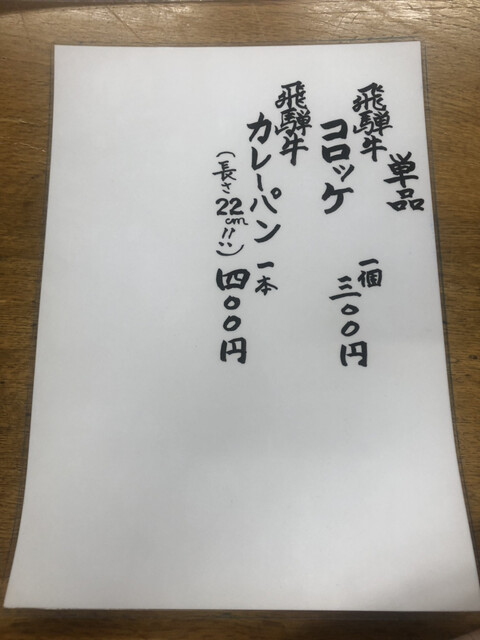 単品
飛騨牛
コロッケ 一個 三〇〇円
飛騨牛
カレーパン 一本 四〇〇円
（長さ22cm!!）